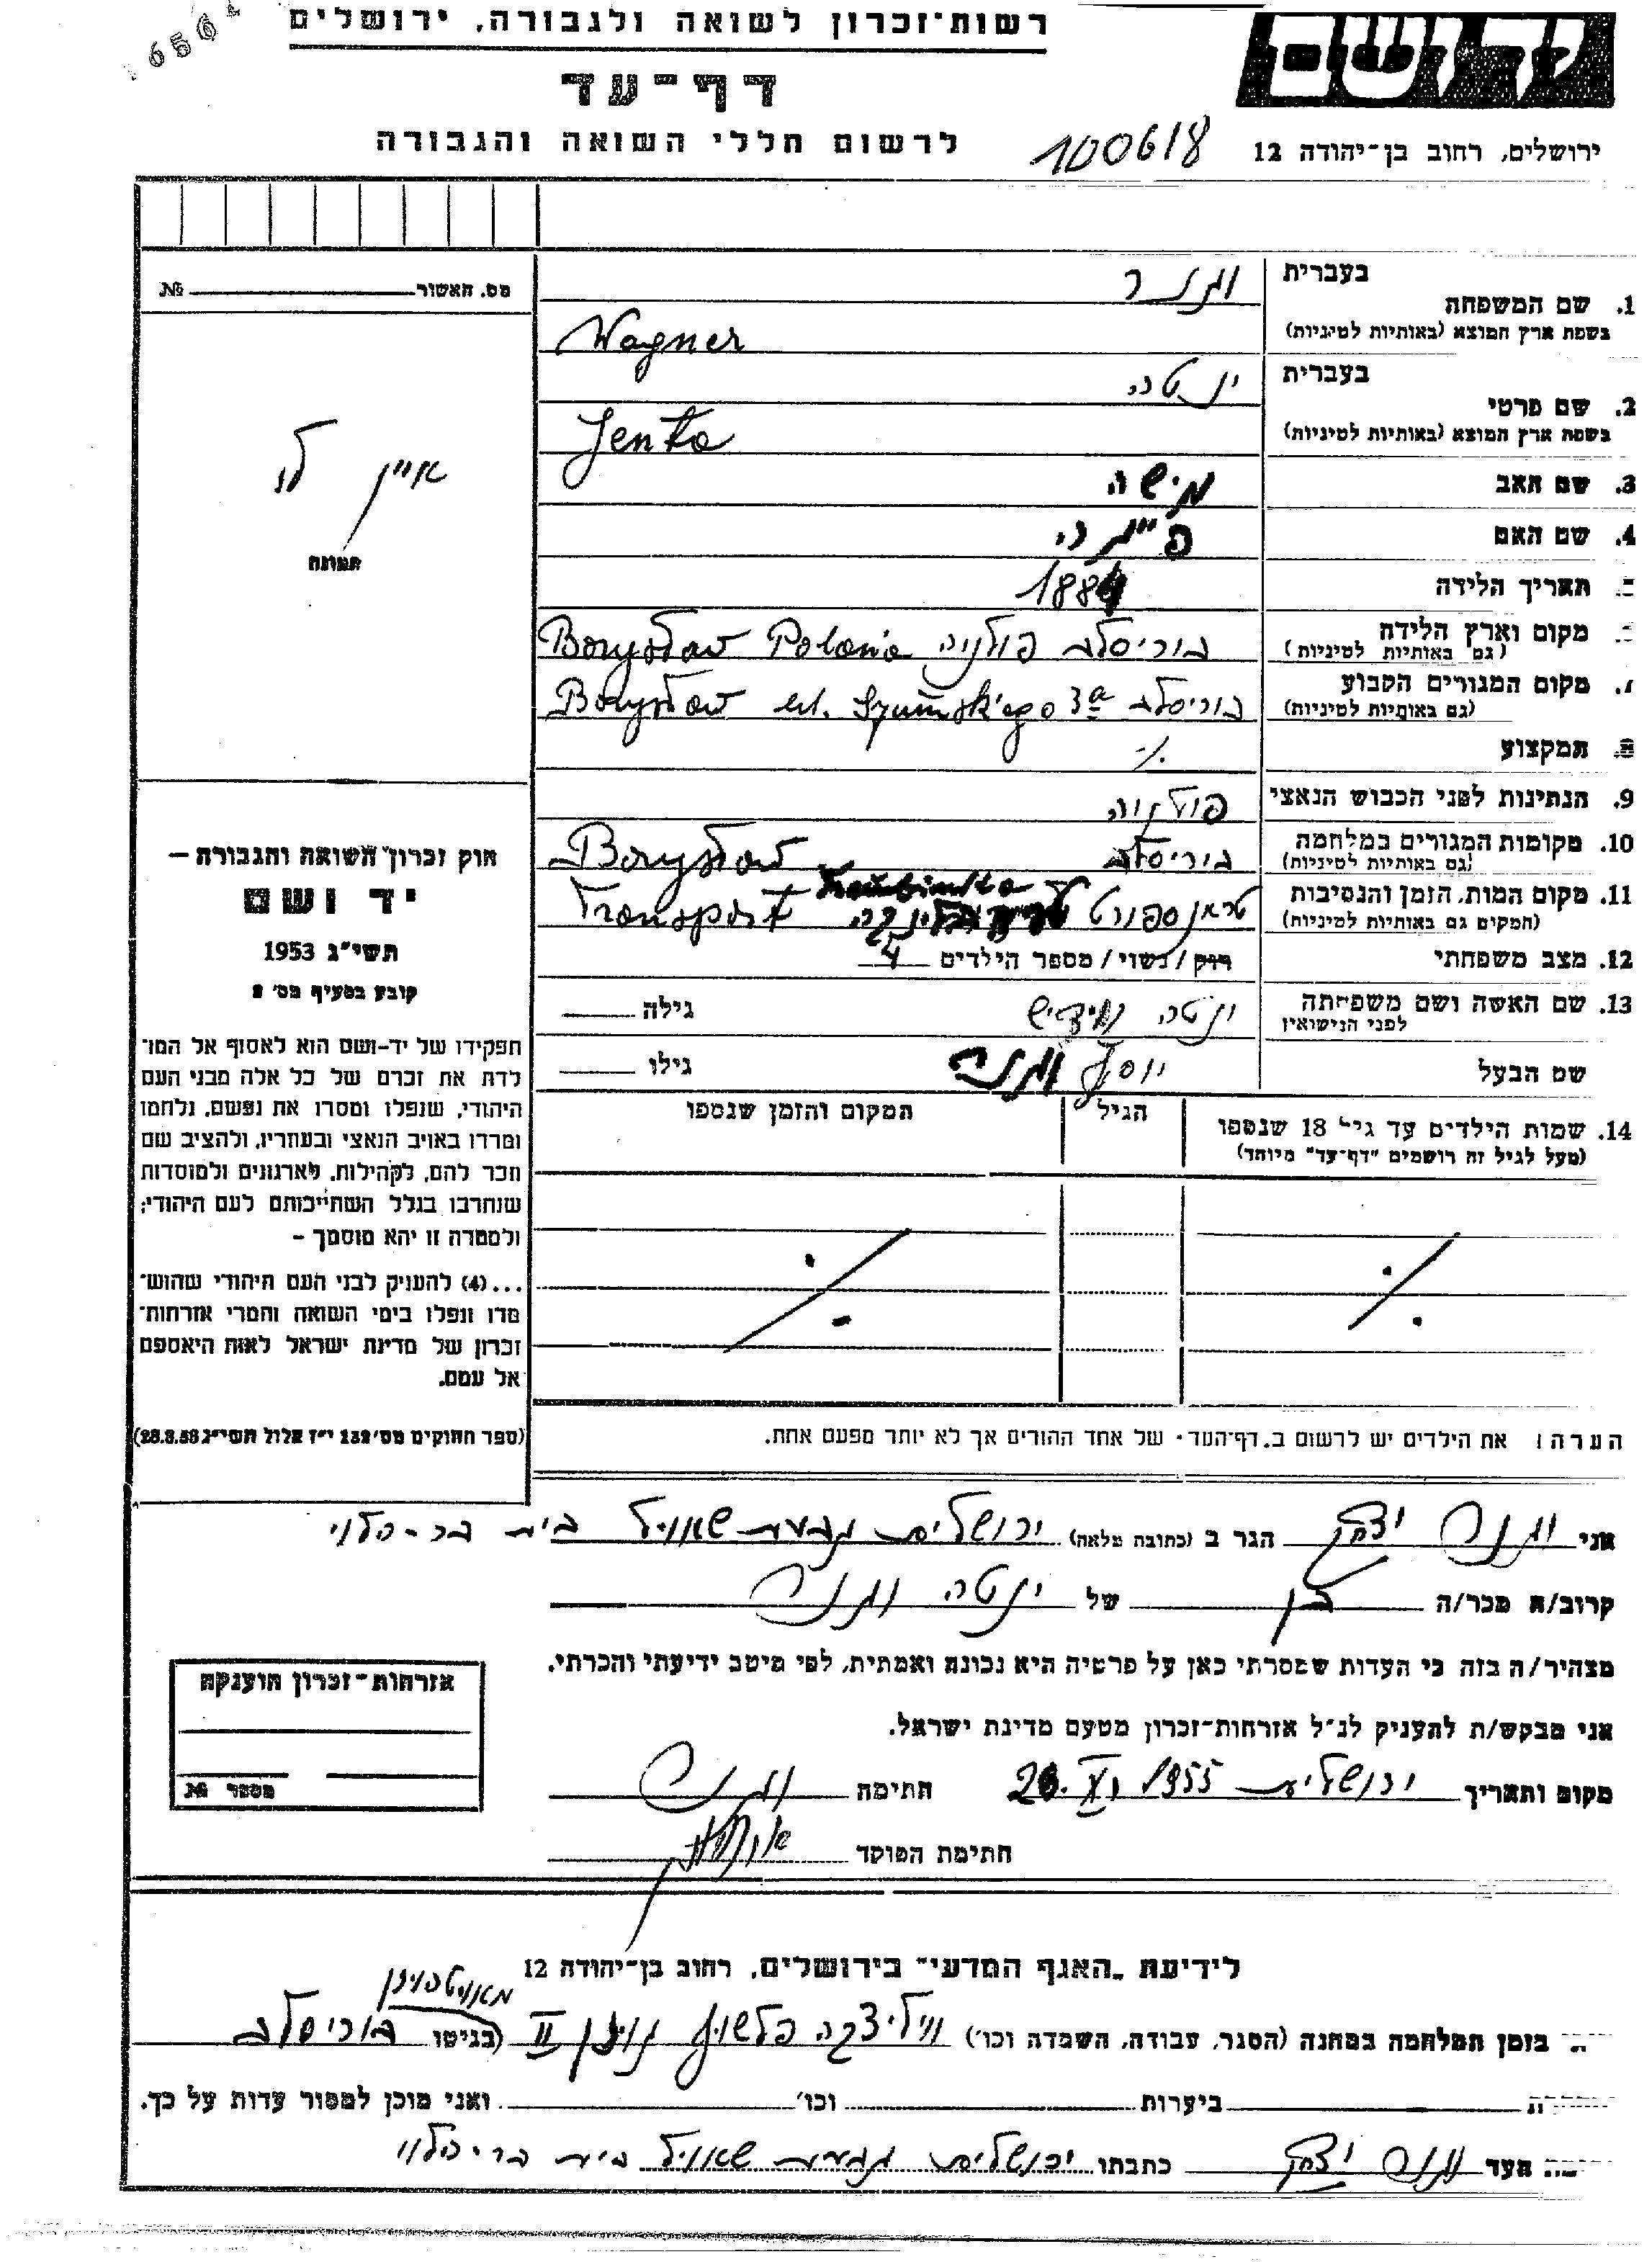 רשות־זכרון לשואה ולגבורה, ירושלים
דף־עד
לרשום חללי השואה והגבורה
100618
ירושלים, רחוב בן־יהודה 12
מס. האשור № 
1. שם המשפחה
בעברית
וגנר
בשפת ארץ המוצא (באותיות לטיניות)
Wagner
2. שם פרטי
בעברית
ינטה
בשפת ארץ המוצא (באותיות לטיניות)
Jenta
3. שם האב
משה
4. שם האם
תאריך הלידה
188
מקום וארץ הלידה
(גם באותיות לטיניות)
בוריסלב פולניה Borysław Polonia
מקום המגורים הקבוע
(גם באותיות לטיניות)
בוריסלב Borysław ul. 3a
המקצוע
./.
9. הנתינות לפני הכבוש הנאצי
פולניה
10. מקומות המגורים במלחמה
(גם באותיות לטיניות)
בוריסלב Borysław
11. מקום המות, הזמן והנסיבות
(המקום גם באותיות לטיניות)
טראנספורט Transport
12. מצב משפחתי
רוק/נשוי/ מספר הילדים 4
13. שם האשה ושם משפחתה
לפני הנישואין
ינטה
גילה
שם הבעל
יוסף וגנר
גילו
14. שמות הילדים עד גיל 18 שנספו
(מעל לגיל זה רושמים "דף־עד" מיוחד)
הגיל
המקום והזמן שנספו
הערה: את הילדים יש לרשום ב„דף־העד" של אחד ההורים אך לא יותר מפעם אחת.
אין לי
תמונה
חוק זכרון השואה והגבורה –
יד ושם
תשי״ג 1953
קובע בסעיף מס׳ 2
תפקידו של יד-ושם הוא לאסוף אל המו־
לדת את זכרם של כל אלה מבני העם
היהודי, שנפלו ומסרו את נפשם, נלחמו
ומרדו באויב הנאצי ובעוזריו, ולהציב שם
וזכר להם, לקהילות, לארגונים ולמוסדות
שנחרבו בגלל השתייכותם לעם היהודי;
ולמטרה זו יהא מוסמך –
...(4) להעניק לבני העם היהודי שהוש־
מדו ונפלו בימי השואה והמרי אזרחות־
זכרון של מדינת ישראל לאות היאספם
אל עמם.
(ספר החוקים מס׳ 132 י״ז אלול תשי״ג 28.8.53)
אני וגנר יצחק הגר ב (כתובת מלאה) ירושלים גבעת שאול בית
קרוב/ה מכר/ה בן של ינטה וגנר
מצהיר/ה בזה כי העדות שמסרתי כאן על פרטיה היא נכונה ואמתית, לפי מיטב ידיעתי והכרתי.
אני מבקש/ת להעניק לנ״ל אזרחות־זכרון מטעם מדינת ישראל.
מקום ותאריך ירושלים 1955 חתימה וגנר
חתימת הפוקד
אזרחות־זכרון הוענקה
מספר №
לידיעת „האגף המדעי" בירושלים, רחוב בן־יהודה 12
בזמן המלחמה במחנה (הסגר, עבודה, השמדה וכו׳) II (בגיטו בוריסלב
ביערות וכו׳ ואני מוכן למסור עדות על כך.
העד וגנר יצחק כתבתו ירושלים גבעת שאול בית